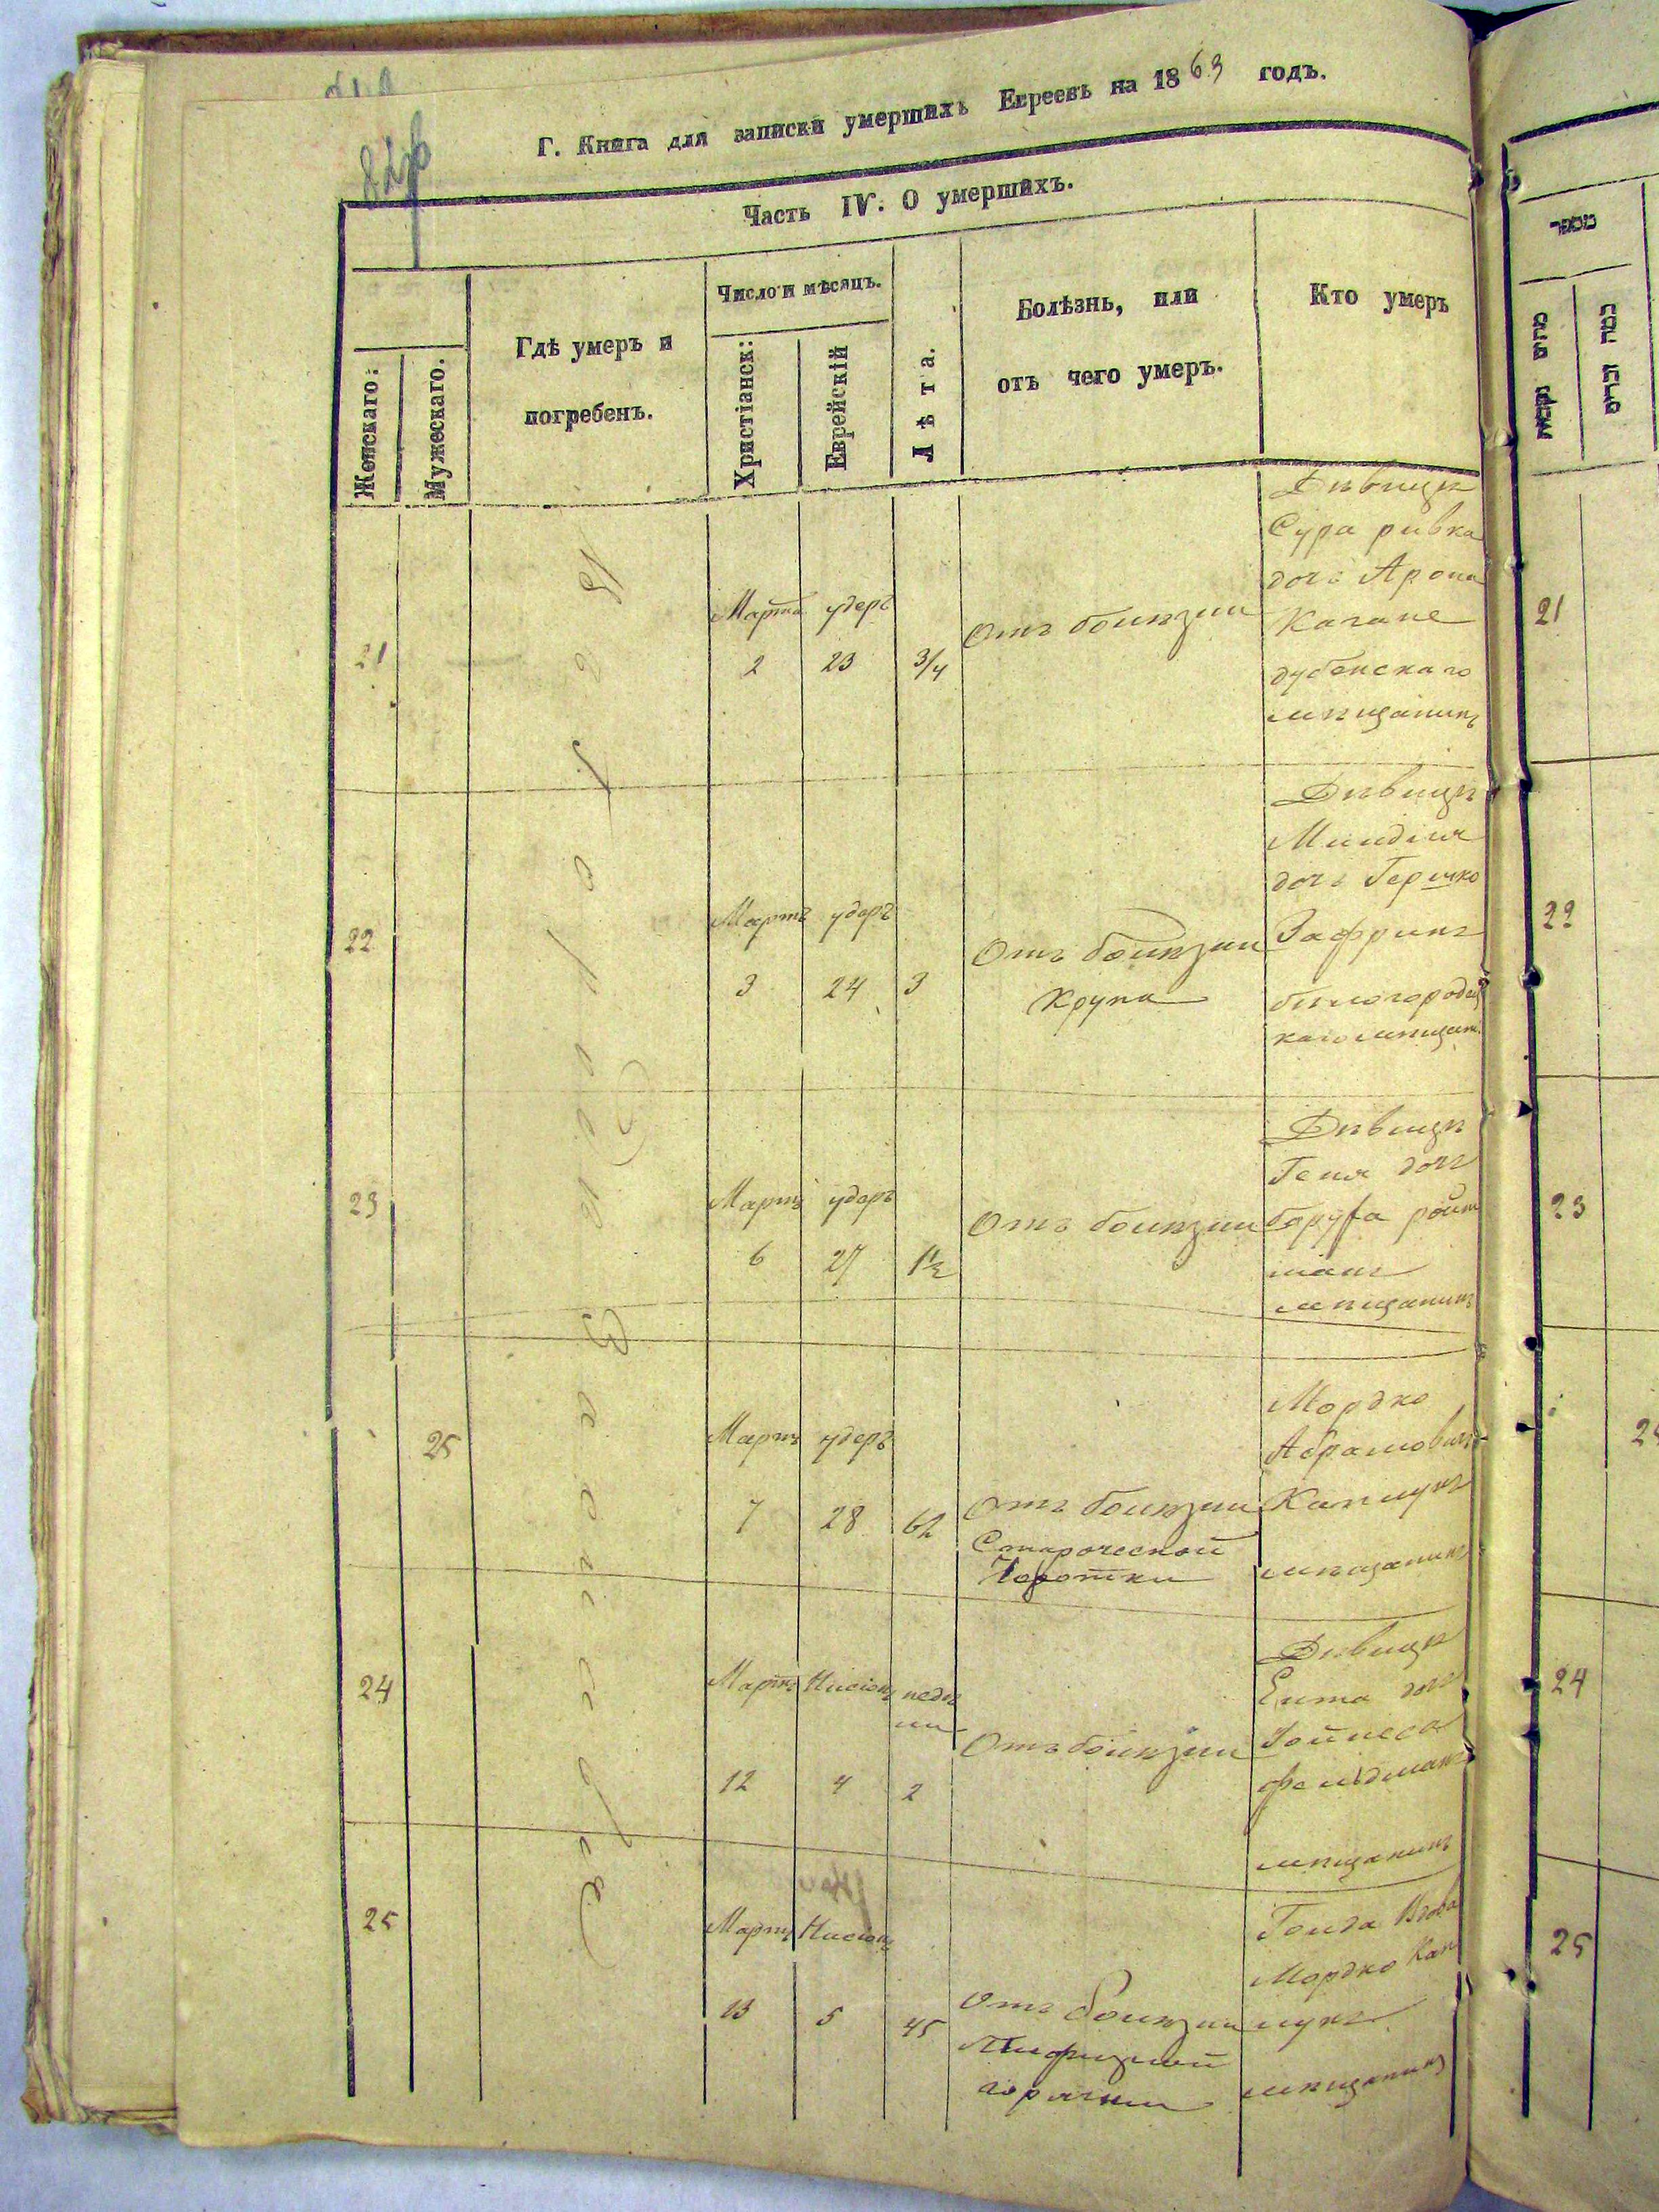 Г. Книга для записки умершихъ Евреевъ на 1863 годъ.
Часть IV. О умершихъ.
Женскаго:
Мужескаго.
Гдѣ умеръ и
погребенъ.
Число и мѣсяцъ.
Христіанск:
Еврейскій
Лѣта.
Болѣзнь, или
отъ чего умеръ.
Кто умеръ
21
Марта
2
удеръ
23
3/4
Отъ болѣзни
Дѣвица
Сура ривка
дочь Арона
Кагане
дубенскаго
мѣщанинъ
22
Мартъ
3
удеръ
24
3
Отъ болѣзни
Крупа
Дѣвица
Миндля
дочь Гершко
Зафринъ
каго мѣщан.
23
Мартъ
6
удеръ
27
1½
Отъ болѣзни
Дѣвица
Геня дочь
Боруха ройт
манъ
мѣщанинъ
25
Мартъ
7
удеръ
28
62
Отъ болѣзни
Старческой
Мордко
Абрамовичъ
Каплунъ
мѣщанинъ
24
Мартъ
12
Нисіонъ
4
недѣ
ли
2
Отъ болѣзни
Дѣвица
Ента дочь
фельдманъ
мѣщанинъ
25
Мартъ
13
Нисіонъ
5
45
Отъ болѣзни
горячки
Вдова
Мордко Кап
лунъ
мѣщанинъ
מספר
21
22
23
24
25